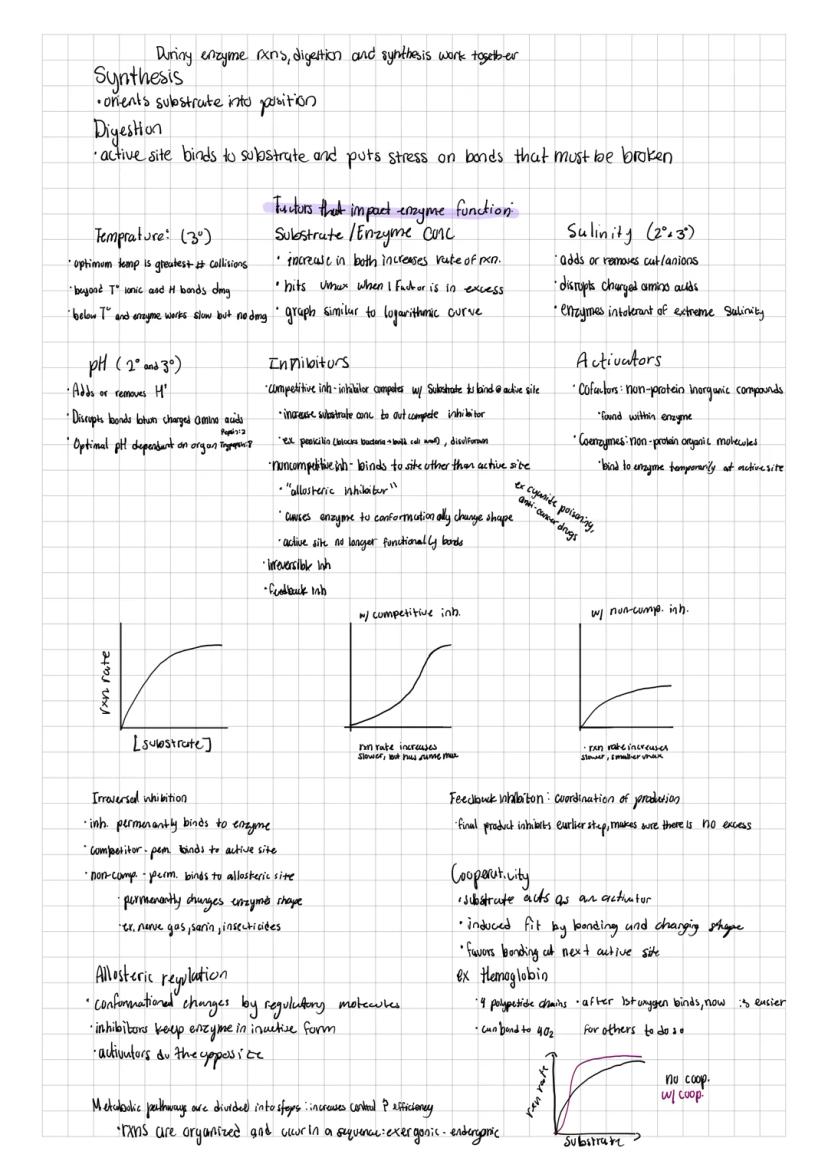 During enzyme rxns, digestion and synthesis work together
Synthesis
• orients substrate into position
Digestion
• active site binds to substrate and puts stress on bonds that must be broken
Factors that impact enzyme function:
Temprature: (3°)
• optimum temp is greatest # collisions
• beyond T° ionic and H bonds dmg
• below T° and enzyme works slow but no dmg
Substrate/Enzyme Conc
• increase in both increases rate of rxn.
• hits Vmax when 1 factor is in excess
• graph similar to logarithmic curve
Salinity (2° & 3°)
• adds or removes cat/anions
• disrupts charged amino acids
• enzymes intolerant of extreme salinity
pH (2° and 3°)
• Adds or removes H⁺
• Disrupts bonds btwn charged amino acids
• Optimal pH dependant on organ Pepsin:2 Trypsin:8
Inhibitors
• competitive inh - inhibitor competes w/ substrate to bind @ active site
• increase substrate conc to out compete inhibitor
• ex penicilin (blocks bacteria → built cell wall), disulfiram
• noncompetitive inh - binds to site other than active site
• "allosteric inhibitor"
• causes enzyme to conformationally change shape
• active site no longer functionally bonds
ex cyanide poisoning,
anti-cancer drugs
• irreversible inh
• feedback inh
Activators
• Cofactors: non-protein inorganic compounds
• found within enzyme
• Coenzymes: non-protein organic molecules
• bind to enzyme temporarily at active site
rxn rate
[substrate]
w/ competitive inh.
rxn rate increases
slower, but has same max
w/ non-comp. inh.
• rxn rate increases
slower, smaller vmax
Irraversal inhibition
• inh. permenantly binds to enzyme
• competitor - pem. binds to active site
• non-comp. - perm. binds to allosteric site
• permenantly changes enzymes shape
• ex. nerve gas, sarin, insecticides
Allosteric regulation
• conformational changes by regulatory molecules
• inhibitors keep enzyme in inactive form
• activators do the opposite
Metabolic pathways are divided into steps: increases control & efficiency
• rxns are organized and occur in a sequence: exergonic - endergonic
Feedback inhibiton: coordination of production
• final product inhibits earlier step, makes sure there is no excess
Cooperativity
• substrate acts as an activator
• induced fit by bonding and changing shape
• favors bonding at next active site
ex Hemoglobin
• 4 polypetide chains
• can bond to 4O₂
• after 1st oxygen binds, now is easier
for others to do so
rxn rate
substrate
no coop.
w/ coop.